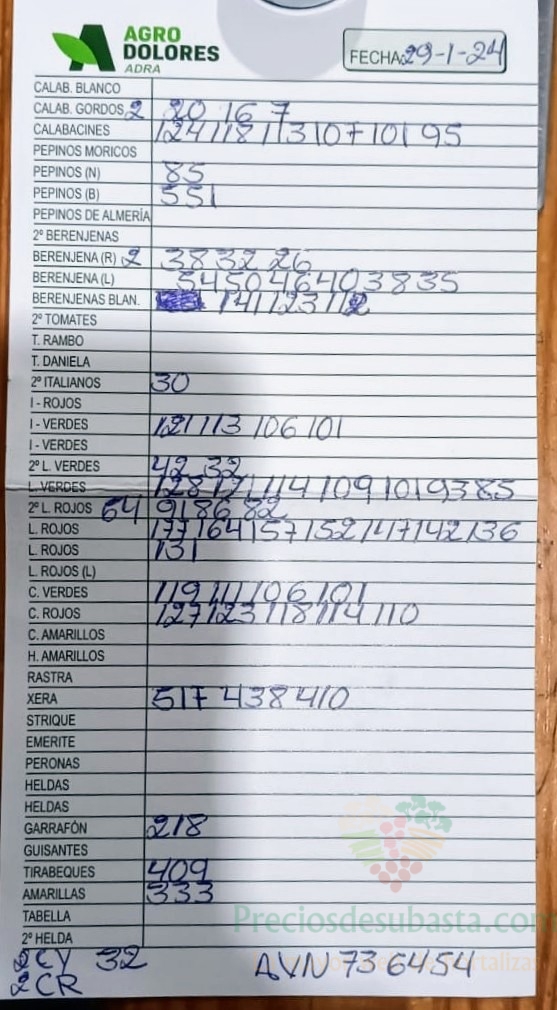 AGRO
DOLORES
ADRA
FECHA: 29-1-24
CALAB. BLANCO
CALAB. GORDOS 2 20 16 7
CALABACINES 124 118 113 107 101 95
PEPINOS MORICOS
PEPINOS (N) 85
PEPINOS (B) 551
PEPINOS DE ALMERÍA
2º BERENJENAS
BERENJENA (R) 2 38 32 26
BERENJENA (L) 54 50 46 40 38 35
BERENJENAS BLAN. 141 123 112
2º TOMATES
T. RAMBO
T. DANIELA
2º ITALIANOS 30
I - ROJOS
I - VERDES 121 113 106 101
I - VERDES
2º L. VERDES 42 32
L. VERDES 128 121 114 109 101 93 85
2º L. ROJOS 64 91 86 82
L. ROJOS 177 164 157 152 147 142 136
L. ROJOS 131
L. ROJOS (L)
C. VERDES 119 111 106 101
C. ROJOS 127 123 118 114 110
C. AMARILLOS
H. AMARILLOS
RASTRA
XERA 517 438 410
STRIQUE
EMERITE
PERONAS
HELDAS
HELDAS
GARRAFÓN 218
GUISANTES
TIRABEQUES 409
AMARILLAS 333
TABELLA
Preciosdesubasta.com
2º HELDA
2 CV 32
AVN 73 64 54
2 CR